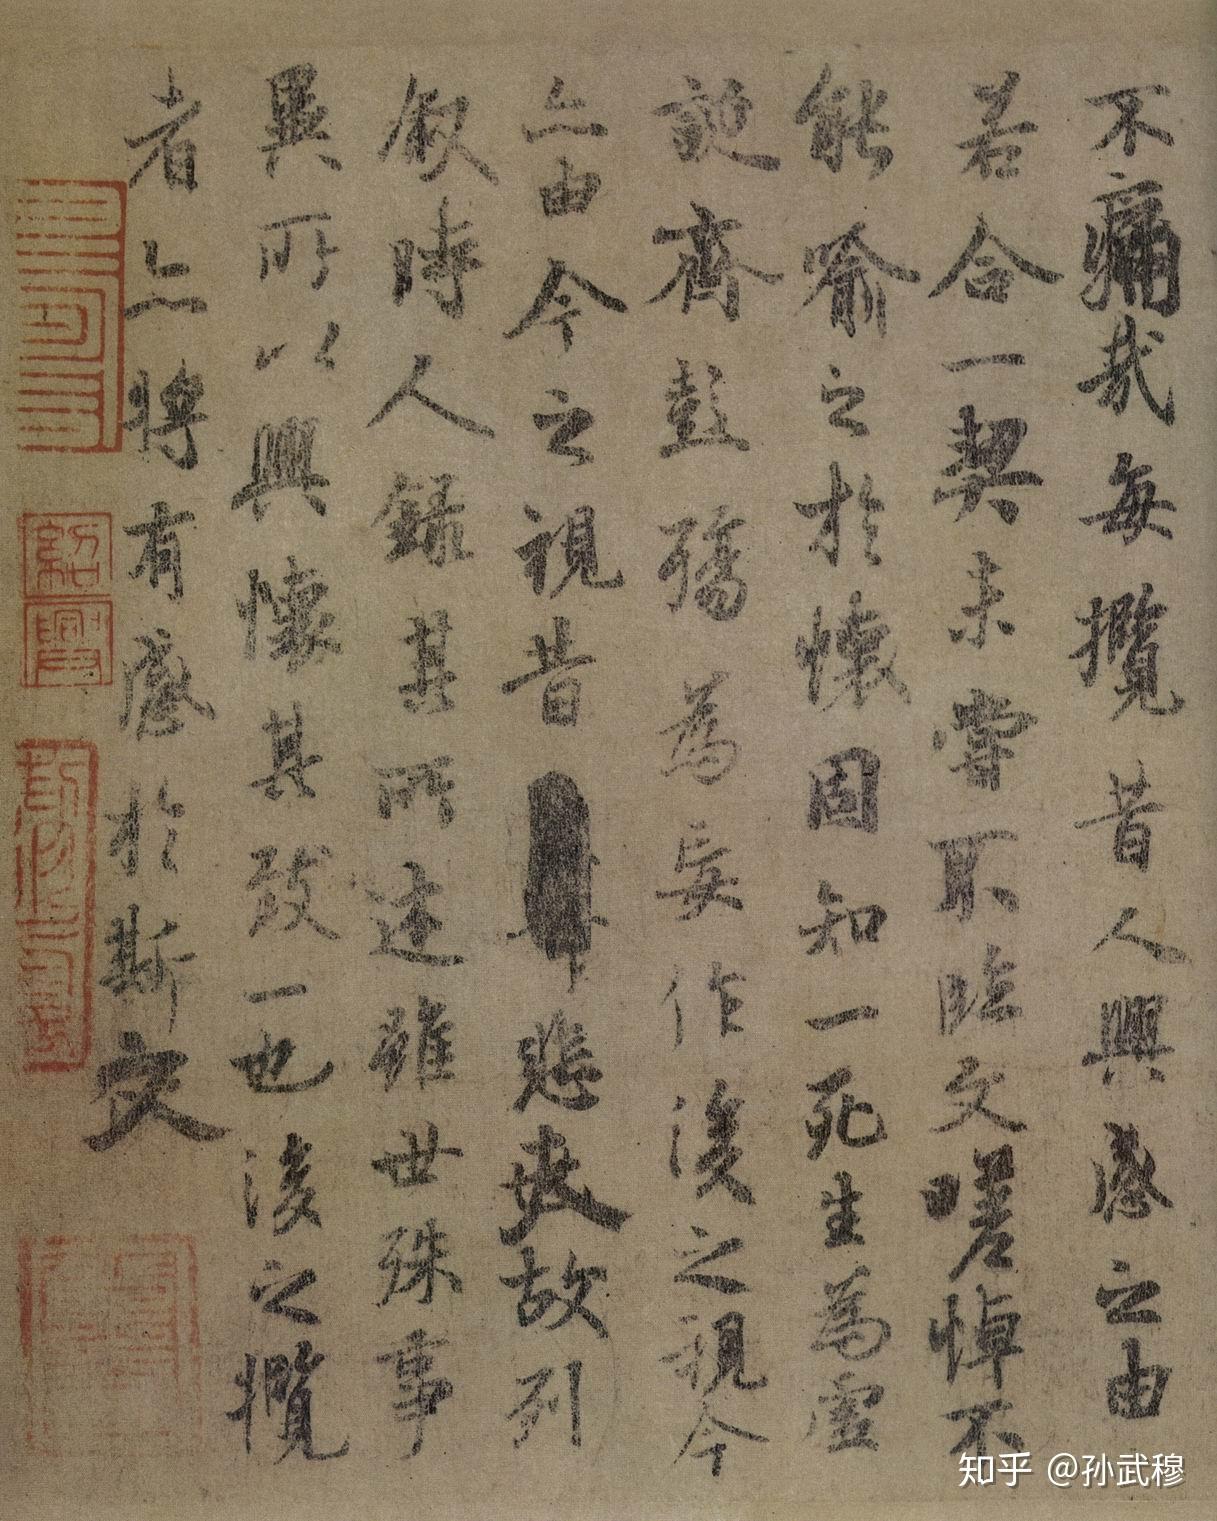 不痛哉每攬昔人興感之由
若合一契未嘗不臨文嗟悼不
能喻之於懷固知一死生為虛
誕齊彭殤為妄作後之視今
亦由今之視昔悲夫故列
敘時人錄其所述雖世殊事
異所以興懷其致一也後之攬
者亦將有感於斯文
知乎 @孙武穆